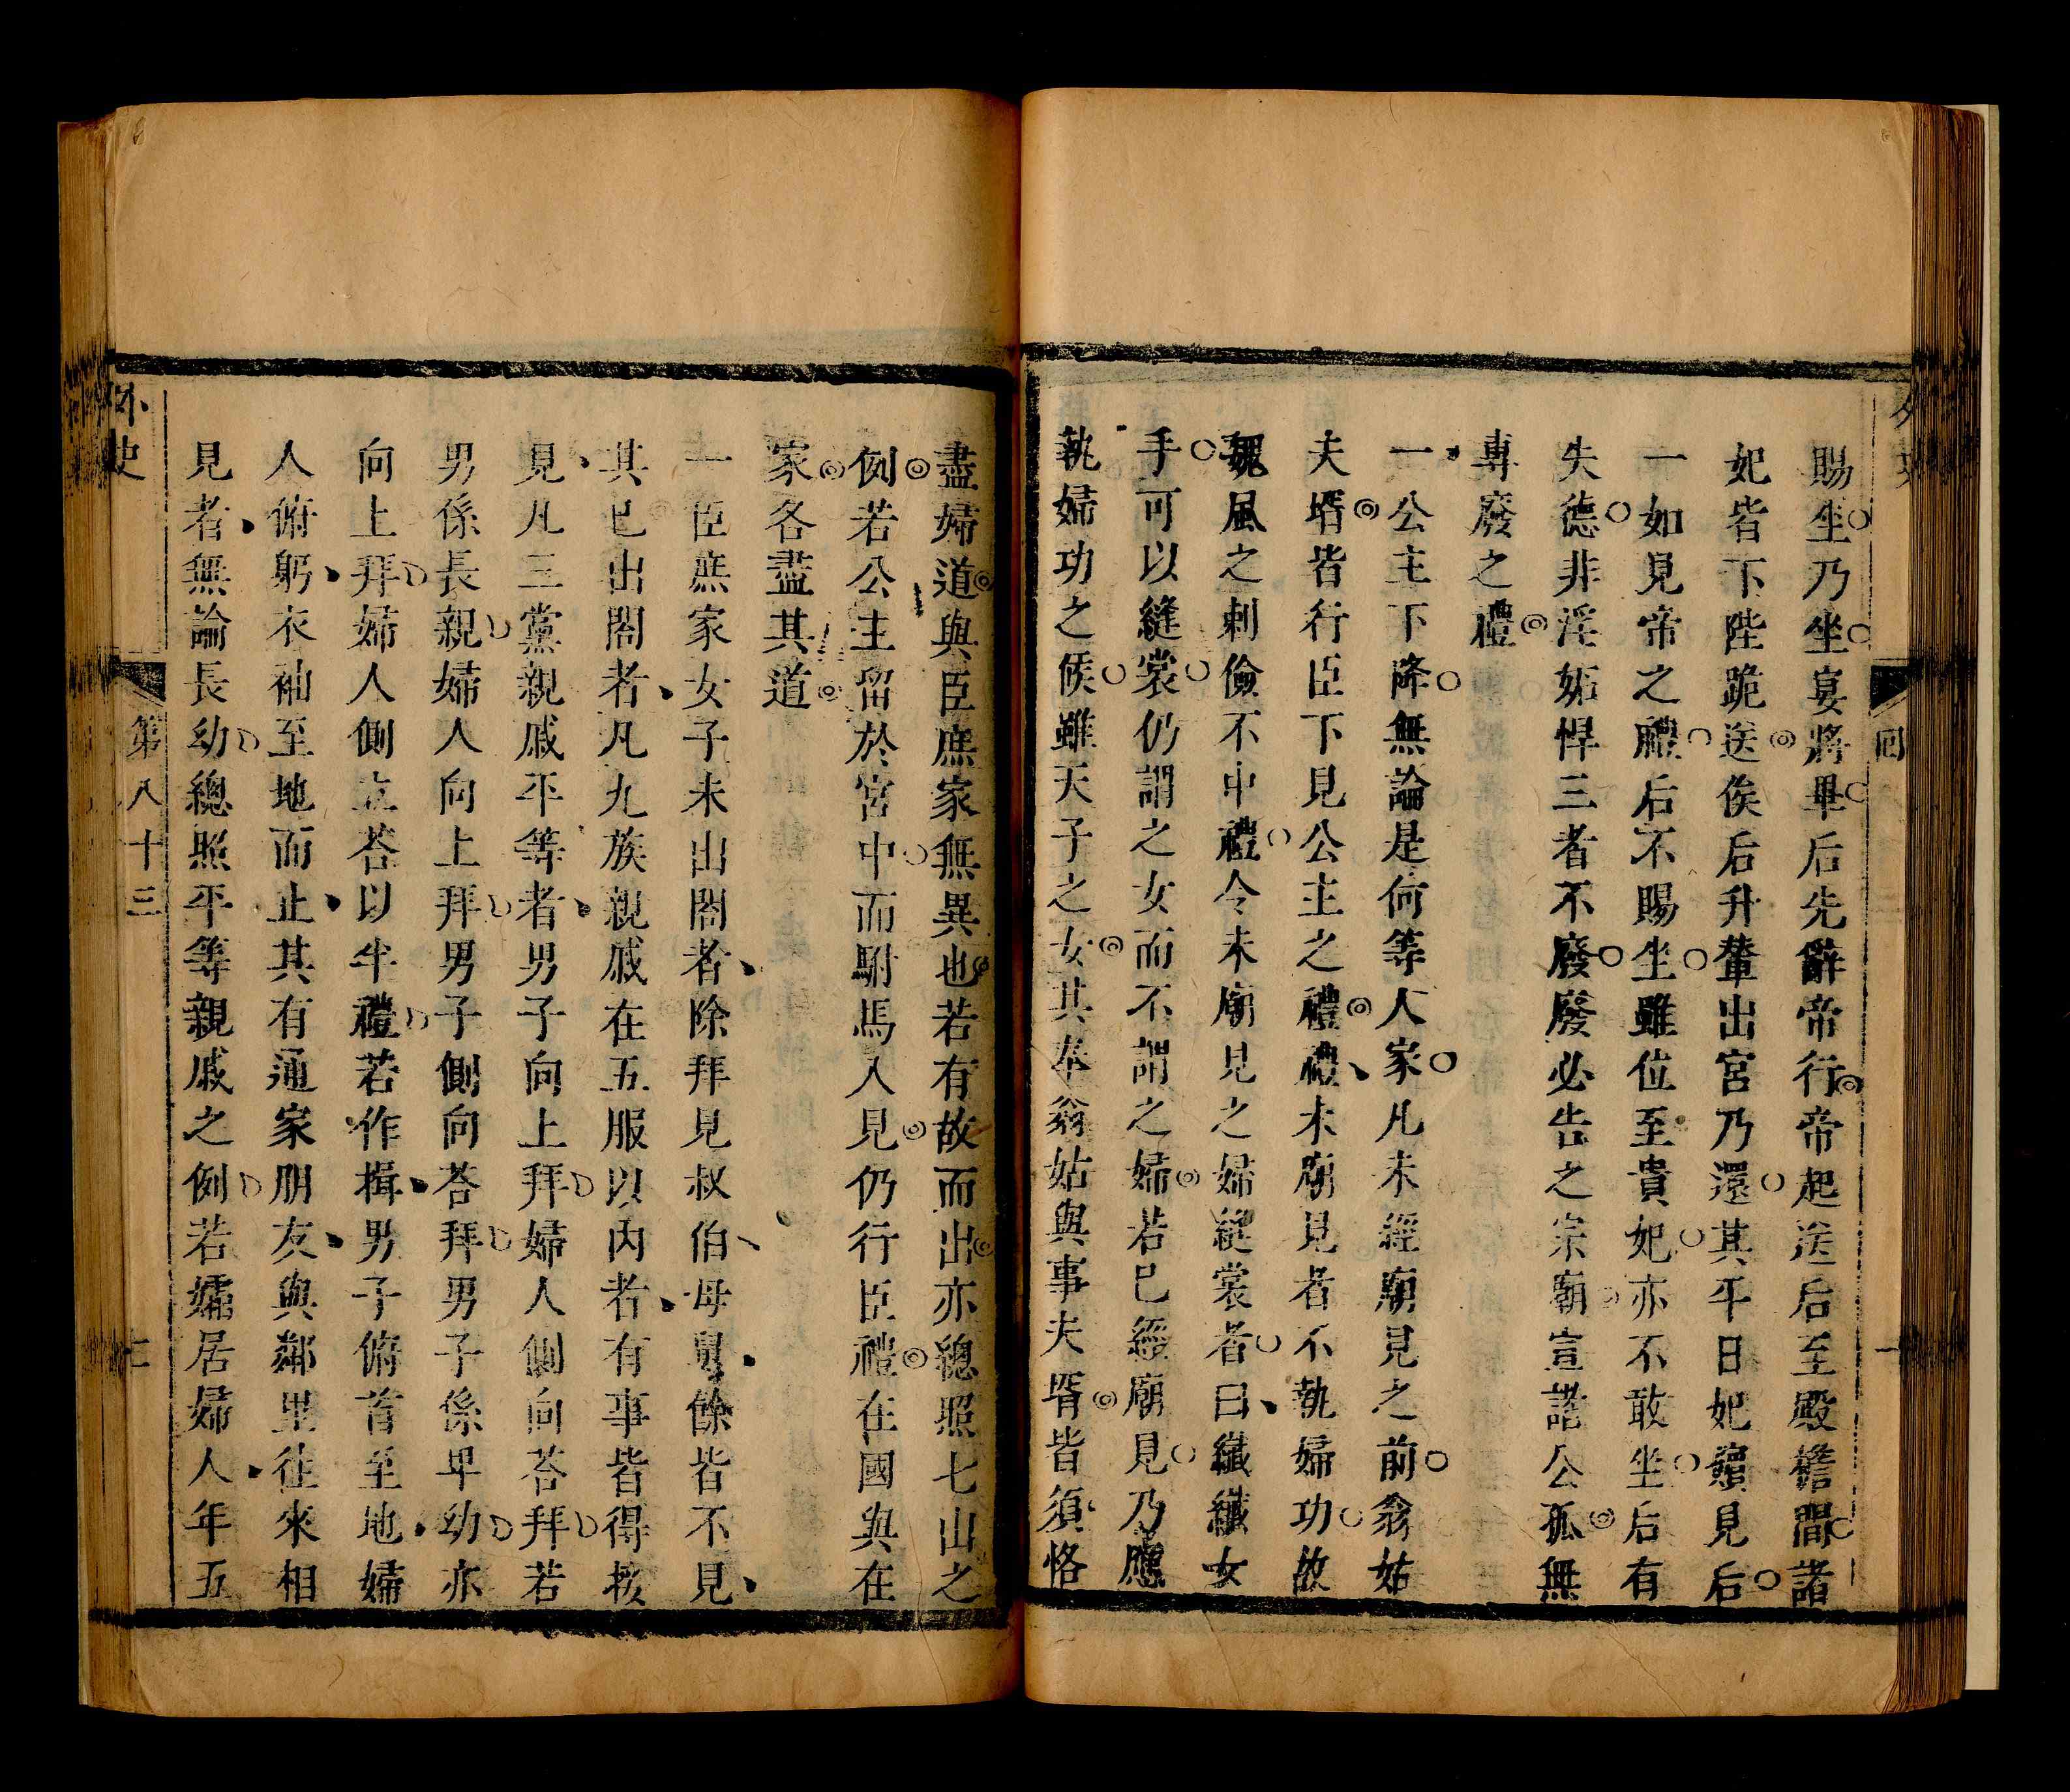 賜坐乃坐宴將畢后先辭帝行帝起送后至殿檐間諸
妃皆下陛跪送俟后升輦出宮乃還其平日妃嬪見后
一如見帝之禮后不賜坐雖位至貴妃亦不敢坐后有
失德非淫妬悍三者不廢廢必告之宗廟宣誥公孤無
專廢之禮
一公主下降無論是何等人家凡未經廟見之前翁姑
夫壻皆行臣下見公主之禮禮未廟見者不執婦功故
魏風之刺儉不中禮令未廟見之婦縫裳者曰纖纖女
手可以縫裳仍謂之女而不謂之婦若已經廟見乃應
執婦功之候雖天子之女其奉翁姑與事夫壻皆須恪
盡婦道與臣庶家無異也若有故而出亦總照七出之
例若公主留於宮中而駙馬入見仍行臣禮在國與在
家各盡其道
一臣庶家女子未出閤者除拜見叔伯母舅餘皆不見
其已出閤者凡九族親戚在五服以內者有事皆得接
見凡三黨親戚平等者男子向上拜婦人側向荅拜若
男係長親婦人向上拜男子側向荅拜男子係卑幼亦
向上拜婦人側立荅以半禮若作揖男子俯首至地婦
人俯躬衣袖至地而止其有通家朋友與鄰里往來相
見者無論長幼總照平等親戚之例若孀居婦人年五
外史
第八十三